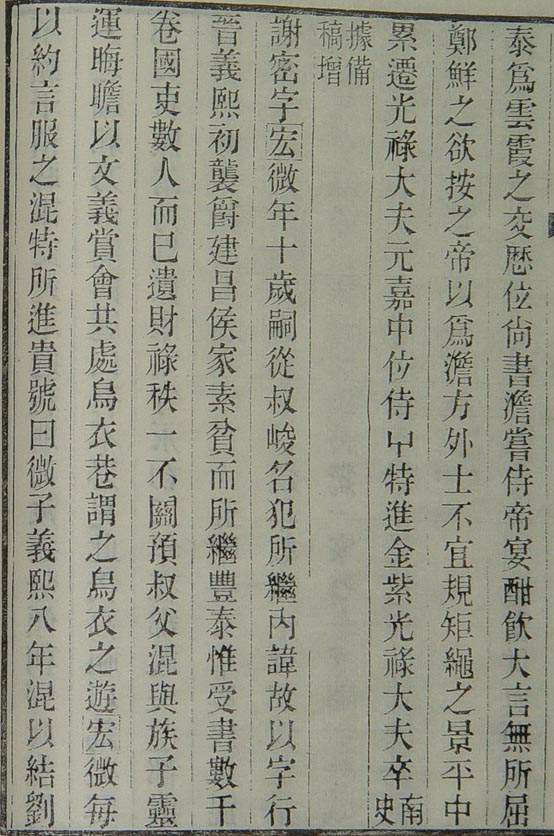 泰爲雲霞之交歴位尙書澹嘗侍帝宴酣飮大言無所屈
鄭鮮之欲按之帝以爲澹方外士不宜規矩繩之景平中
累遷光祿大夫元嘉中位侍中特進金紫光祿大夫卒南史
據備稿增
謝密字宏微年十歲嗣從叔峻名犯所繼內諱故以字行
晉義熙初襲爵建昌侯家素貧而所繼豐泰惟受書數千
卷國吏數人而已遺財祿秩一不關預叔父混與族子靈
運晦瞻以文義賞會共處烏衣巷謂之烏衣之遊宏微每
以約言服之混特所進貴號曰微子義熙八年混以結劉